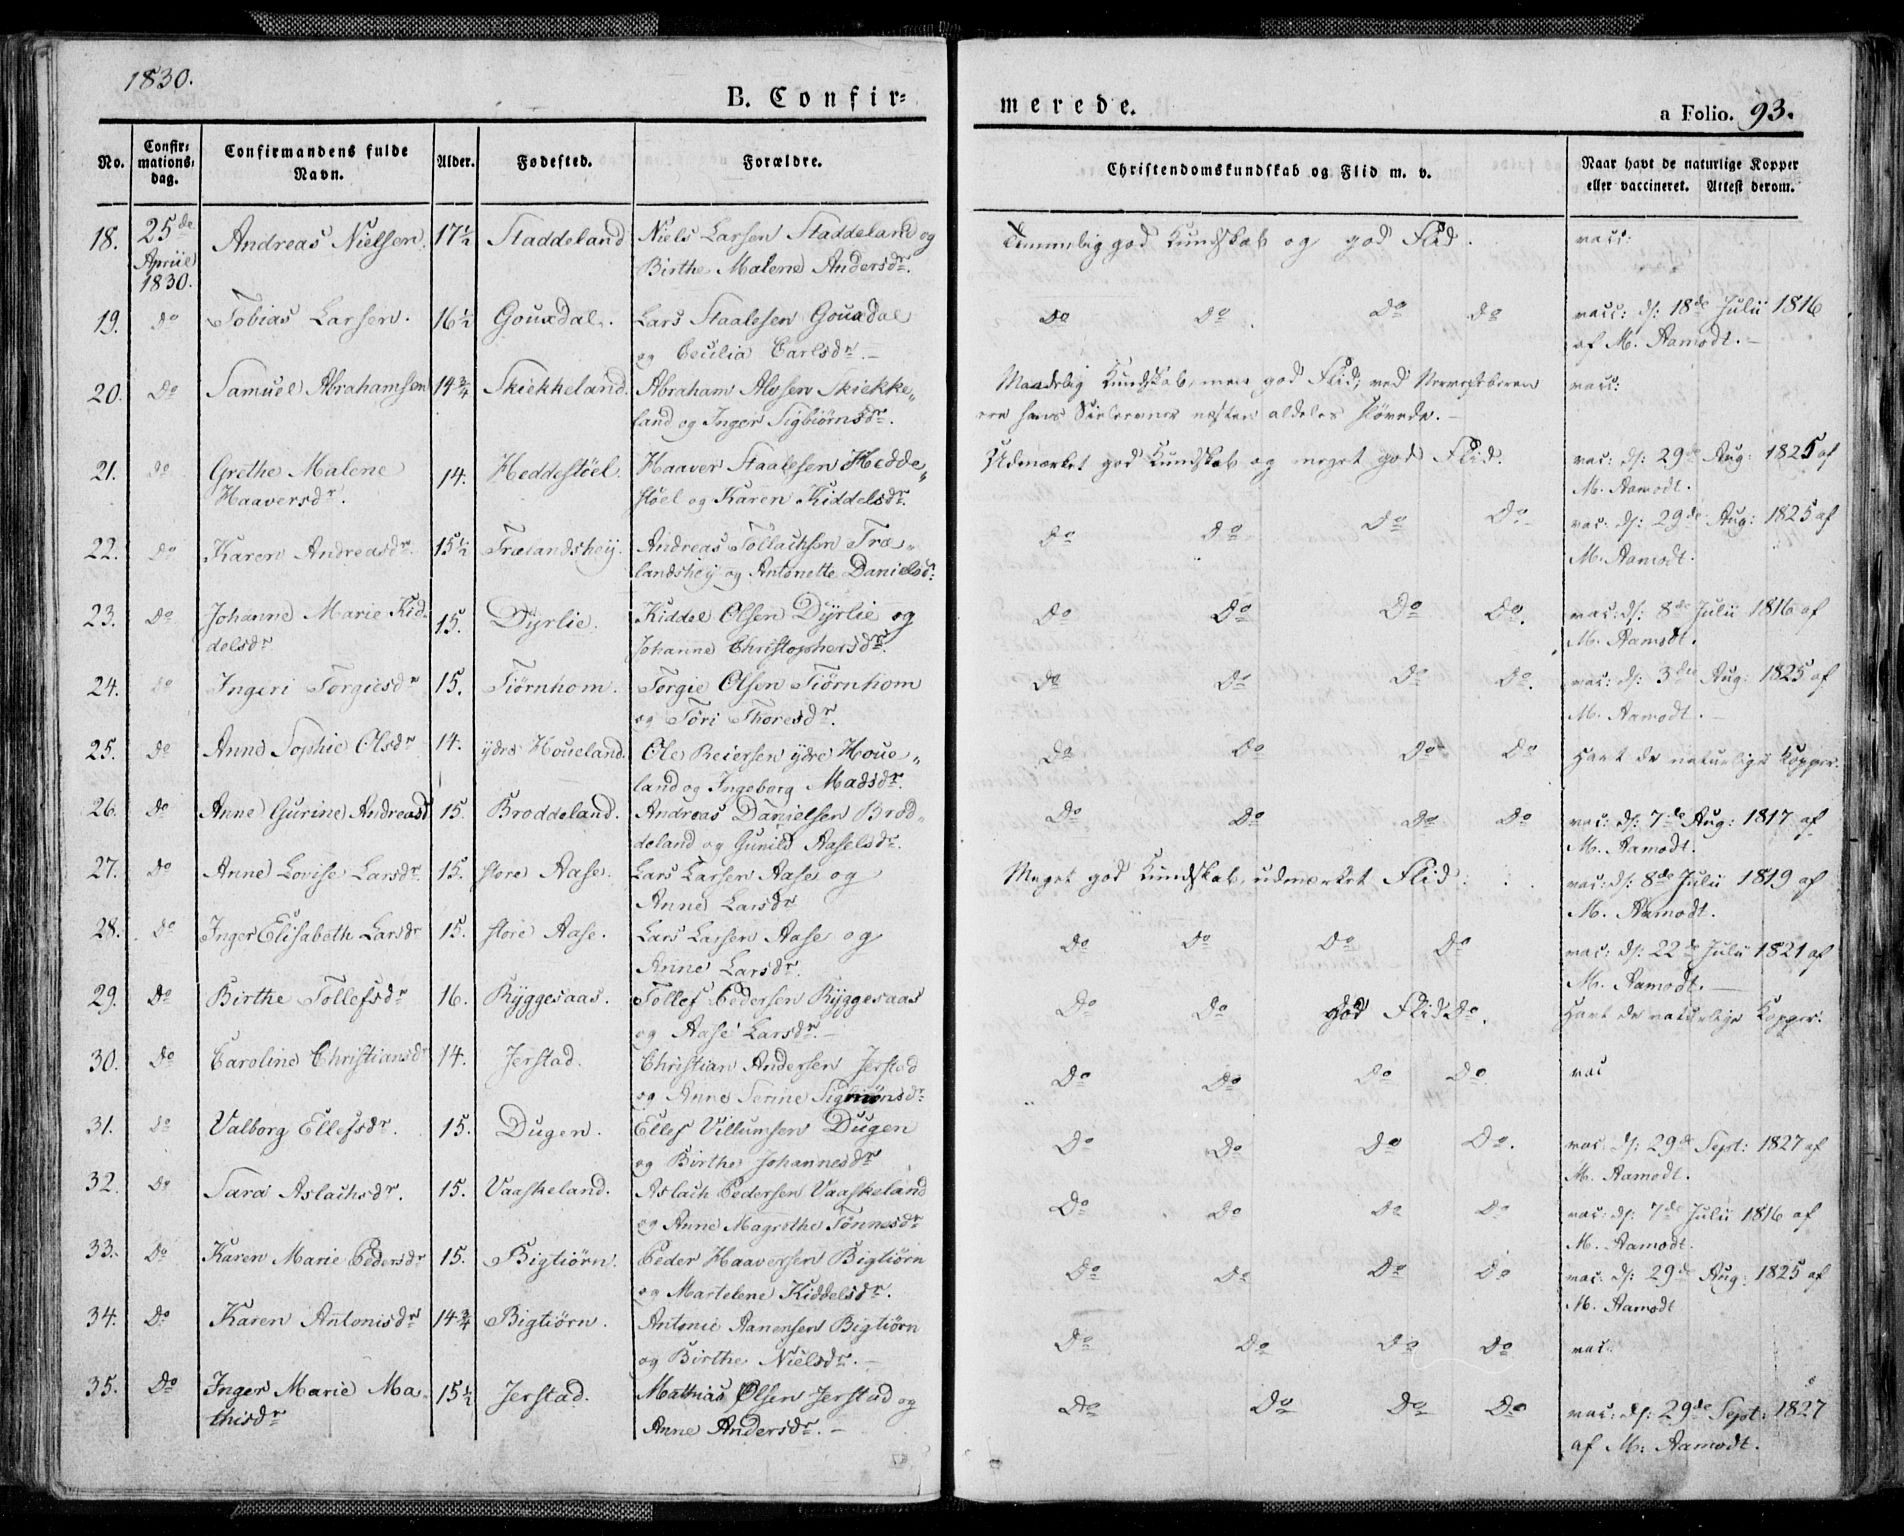 1830.
B. Confir=
merede.
a Folio. 93.
No.
Confir=
mations=
dag.
Confirmandens fulde
Navn.
Alder.
Fødested.
Forældre.
Christendomskundskab og Flid m. v.
Naar havt de naturlige Kopper
eller vaccineret. Attest derom.
18. 25de Andreas Nielsen. 17½ Staddeland Niels Larsen Staddeland og Temmelig god Kundskab og god Flid. vacc:
April Birthe Malene Andersdr.
1830.
19. Do Tobias Larsen. 16½ Gouxdal. Lars Staalesen Gouxdal Do Do Do Do vacc: d: 18de Julii 1816
og Cecilia Carlsdr. af M. Aamodt.
20. Do Samuel Abrahamsen 14¾ Skiekkeland. Abraham Alvsen Skiekke„ Maadelig Kundskab, men god Flid; ved Nervefeberen vacc:
land og Inger Sigbiørnsdr. ere hans Sielsevner næsten aldeles sløvede.
21. Do Grethe Malene 14. Heddestøel. Haaver Staalesen Hedde„ Udmærket god Kundskab og meget god Flid. vac: d: 29de Aug: 1825 af
Haaversdr. støel og Karen Kiddelsdr. M. Aamodt.
22. Do Karen Andreasdr. 15½ Trælandshej. Andreas Tollachsen Træ„ Do Do Do Do vac: d: 29de Aug: 1825 af
landshej og Antonette Danielsd: M. Aamodt.
23. Do Johanne Marie Kid„ 15. Dÿrlie. Kiddel Olsen Dÿrlie og Do Do Do Do. vac: d: 8de Julii 1816 af
delsdr Johanne Christophersdr. M. Aamodt.
24. Do Ingeri Torgiesdr 15. Tiørnhom. Torgie Olsen Tiørnhom Do Do Do Do. vac: d: 3die Aug: 1825 af
og Tøri Thoresdr. M. Aamodt.
25. Do Anne Sophie Olsdr 14. ydre Houeland. Ole Reiersen ydre Houe„ Do Do Do Do Havt de naturlige Kopper.
land og Ingeborg Madsdr.
26. Do Anne Gurine Andreasd 15. Broddeland. Andreas Danielsen Brod„ Do Do Do Do vac: d: 7de Aug: 1817 af
deland og Gunild Aaselsdr. M. Aamodt.
27. Do Anne Lovise Larsdr. 15. store Aase. Lars Larsen Aase og Meget god Kundskab, udmærket Flid. vac: d: 8de Julii 1819 af
Anne Larsdr M. Aamodt.
28. Do Inger Elisabeth Larsdr 15. store Aase. Lars Larsen Aase og Do Do Do Do vac: d: 22de Julii 1821 af
Anne Larsdr. M. Aamodt.
29. Do Birthe Tollefsdr 16. Ryggesaas. Tollef Pedersen Ryggesaas Do Do God Flid Do. Havt de naturlige Kopper.
og Aase Larsdr.
30. Do Caroline Christiansdr 14. Jerstad. Christian Andersen Jerstad Do Do Do Do. vac
og Anne Serine Sigbiørnsdr
31. Do Valborg Ellefsdr. 15. Dugen. Ellef Villumsen Dugen Do Do Do Do. vac: d: 29de Sept: 1827 af
og Birthe Johannesdr M. Aamodt.
32. Do Sara Aslachsdr. 15. Vaaskeland. Aslach Pedersen Vaaskeland Do Do Do Do vac: d: 7de Julii 1816 af
og Anne Magrethe Tønnesdr M. Aamodt.
33. Do Karen Marie Pedersdr 15. Bigtiørn. Peder Haaversen Bigtiørn Do Do Do Do vac: d: 29de Aug: 1825 af
og Martelene Kiddelsdr. M. Aamodt
34. Do Karen Antonisdr 14¾ Bigtiørn. Antonie Aanensen Bigtiørn Do Do Do Do vac.
og Birthe Nielsdr.
35. Do Inger Marie Ma„ 15½ Jerstad. Mathias Olsen Jerstad og Do Do Do Do vac: d: 29de Sept: 1827
thisdr Anne Andersdr. af M. Aamodt.